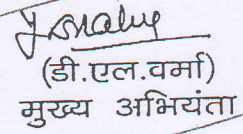 (डी.एल.वर्मा)
मुख्य अभियंता